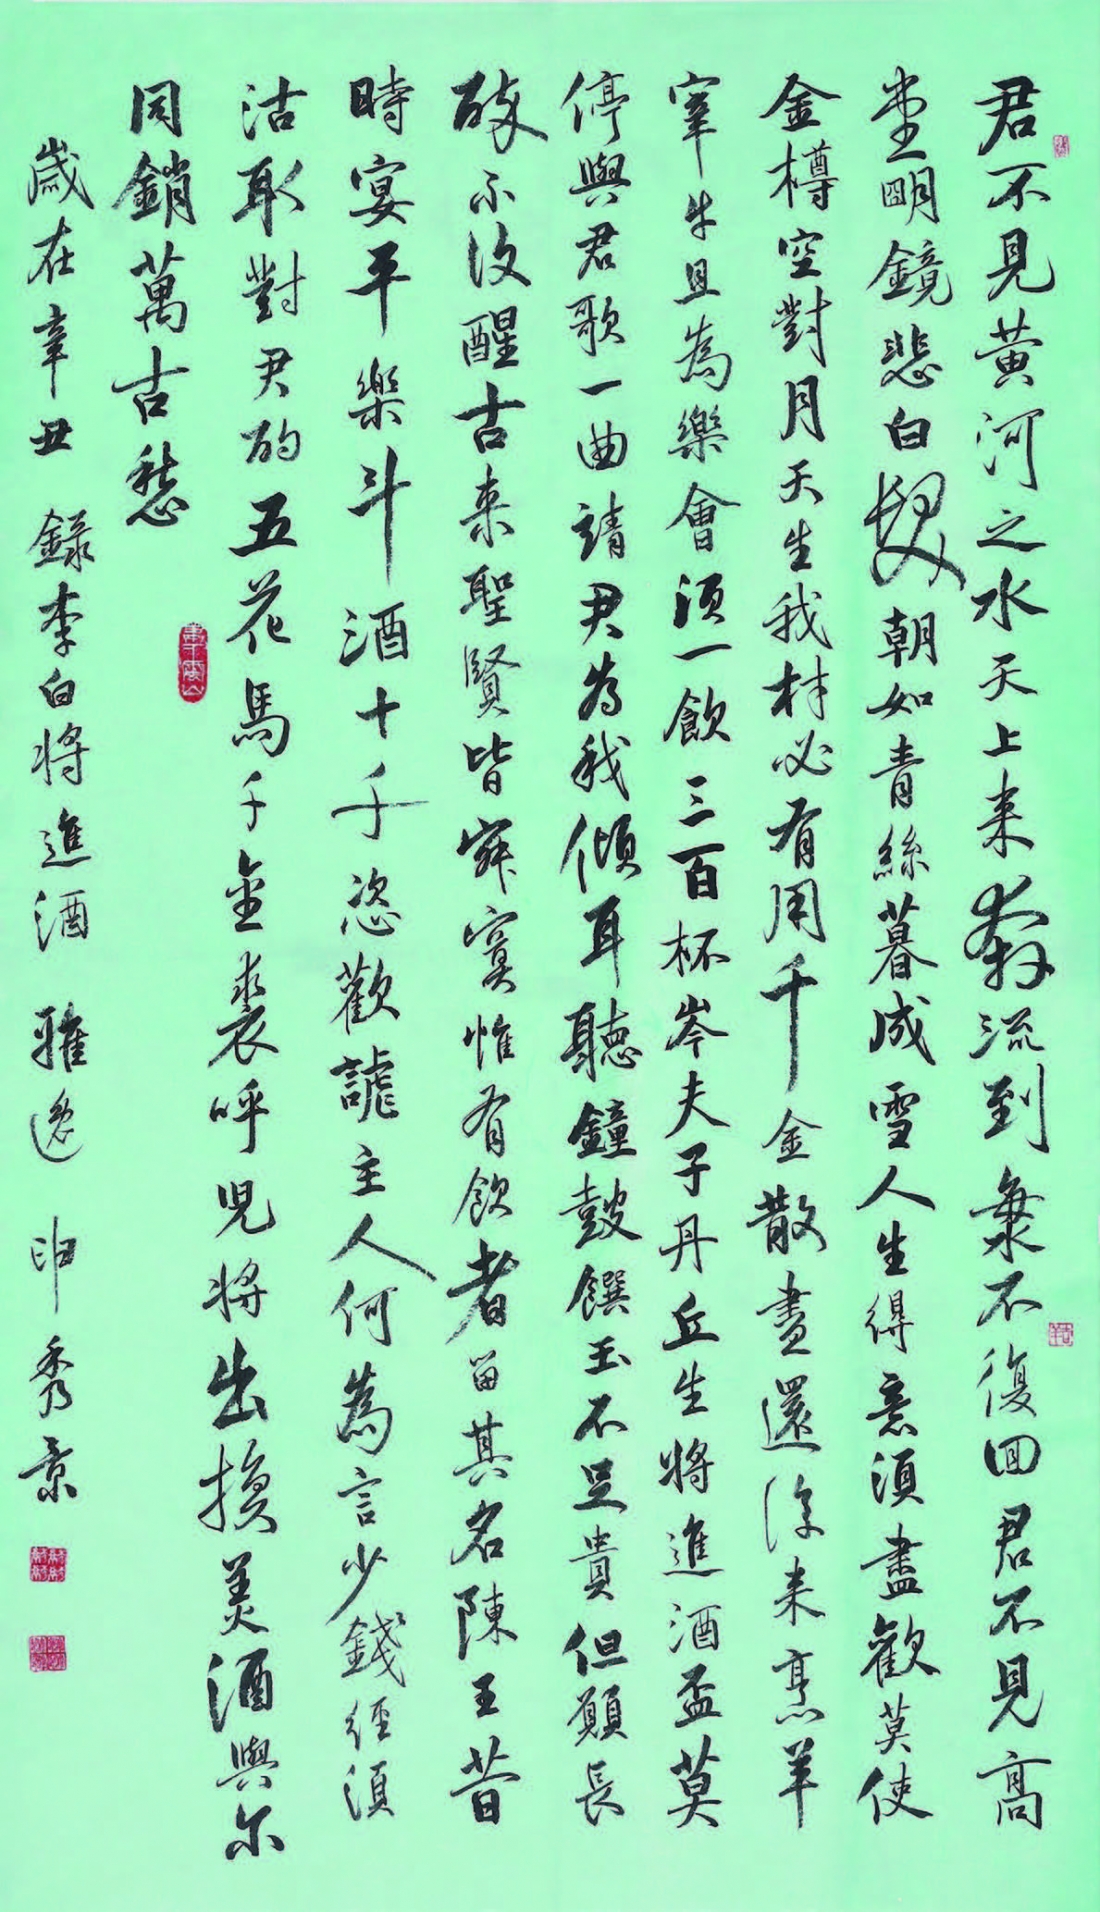 君不見黄河之水天上来奔流到海不復回君不見高
堂明鏡悲白髮朝如青絲暮成雪人生得意須盡歡莫使
金樽空對月天生我材必有用千金散盡還復来烹羊
宰牛且為樂會須一飲三百杯岑夫子丹丘生將進酒盃莫
停與君歌一曲請君為我傾耳聽鐘鼓饌玉不足貴但願長
醉不復醒古来聖賢皆寂寞惟有飲者留其名陳王昔
時宴平樂斗酒十千恣歡謔主人何為言少錢徑須
沽取對君酌五花馬千金裘呼兒將出換美酒與尔
同銷萬古愁
歲在辛丑 録李白將進酒 雅逸 申秀景